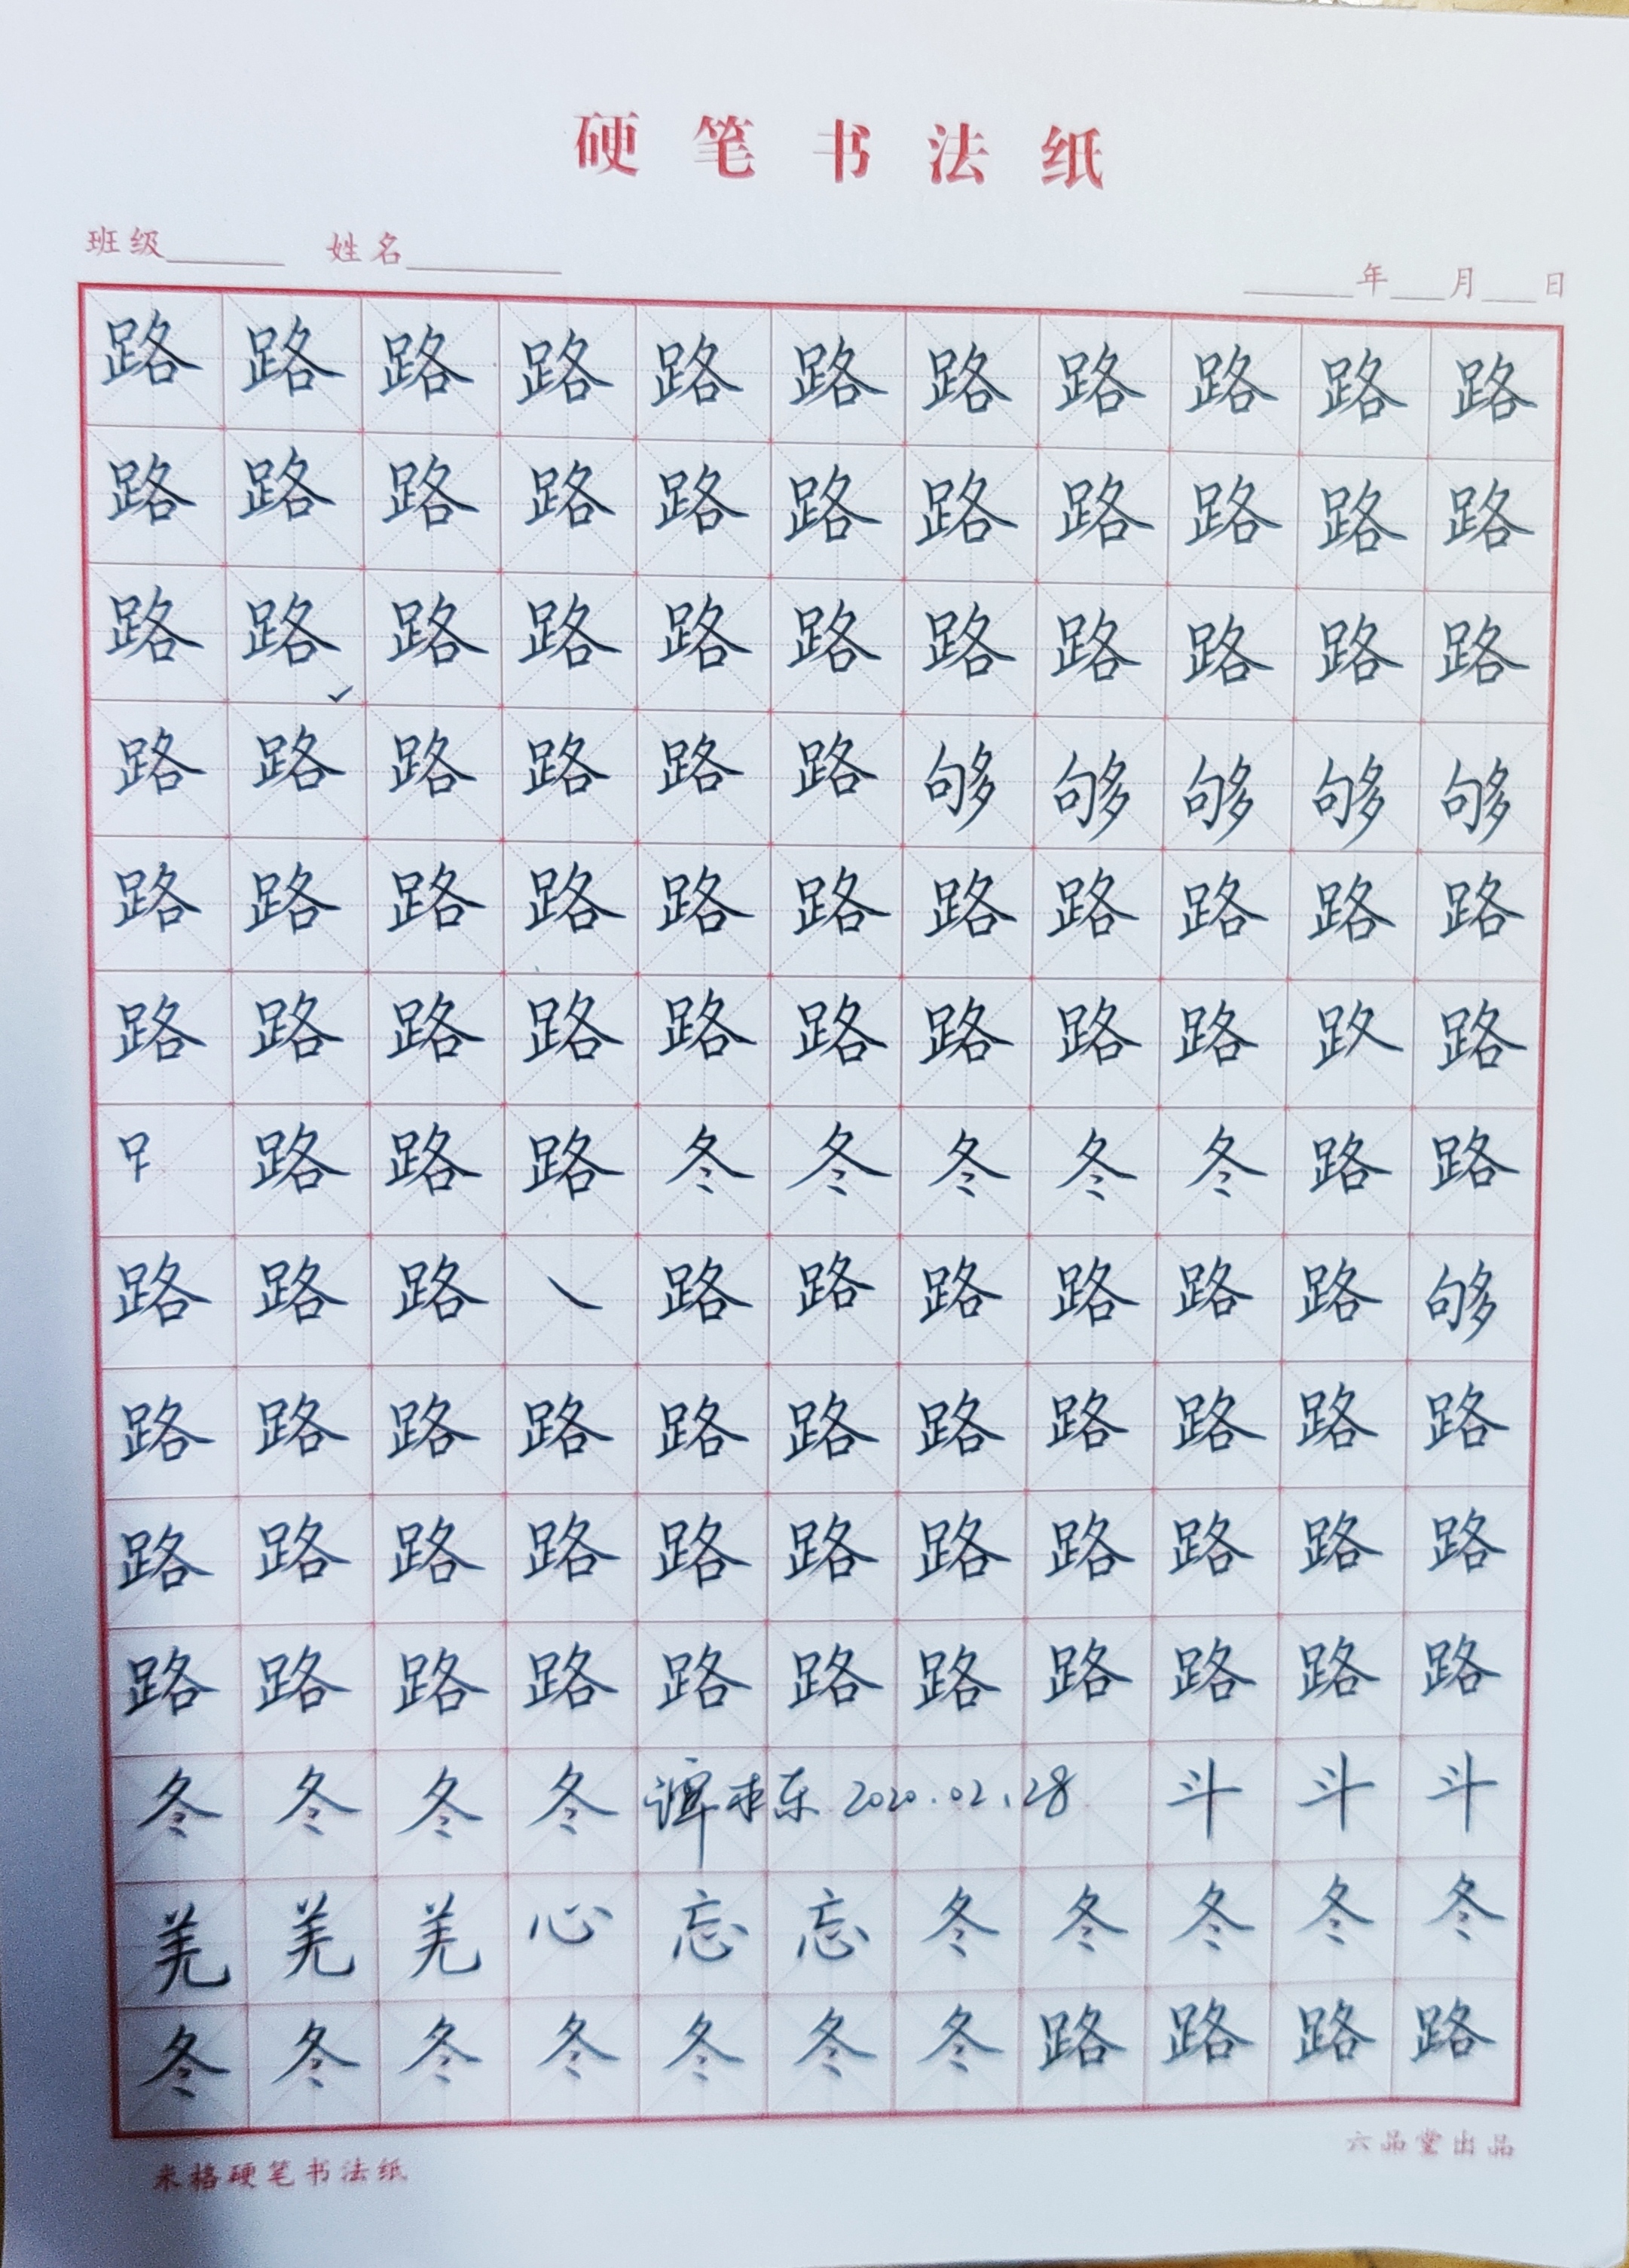 硬笔书法纸
班级 姓名 年 月 日
路路路路路路路路路路路
路路路路路路路路路路路
路路路路路路路路路路路
路路路路路路够够够够够
路路路路路路路路路路路
路路路路路路路路路路
路路路冬冬冬冬冬路路
路路路路路路路路路够
路路路路路路路路路路路
路路路路路路路路路路路
路路路路路路路路路路路
冬冬冬冬 2020.02.28 斗斗斗
羌羌羌心忘忘冬冬冬冬冬
冬冬冬冬冬冬冬路路路路
米格硬笔书法纸 六品堂出品